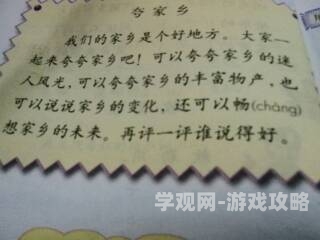 夸家乡
我们的家乡是个好地方。大家一
起来夸夸家乡吧！可以夸夸家乡的迷
人风光，可以夸夸家乡的丰富物产，也
可以说说家乡的变化，还可以畅(chàng)
想家乡的未来。再评一评谁说得好。
学观网-游戏攻略